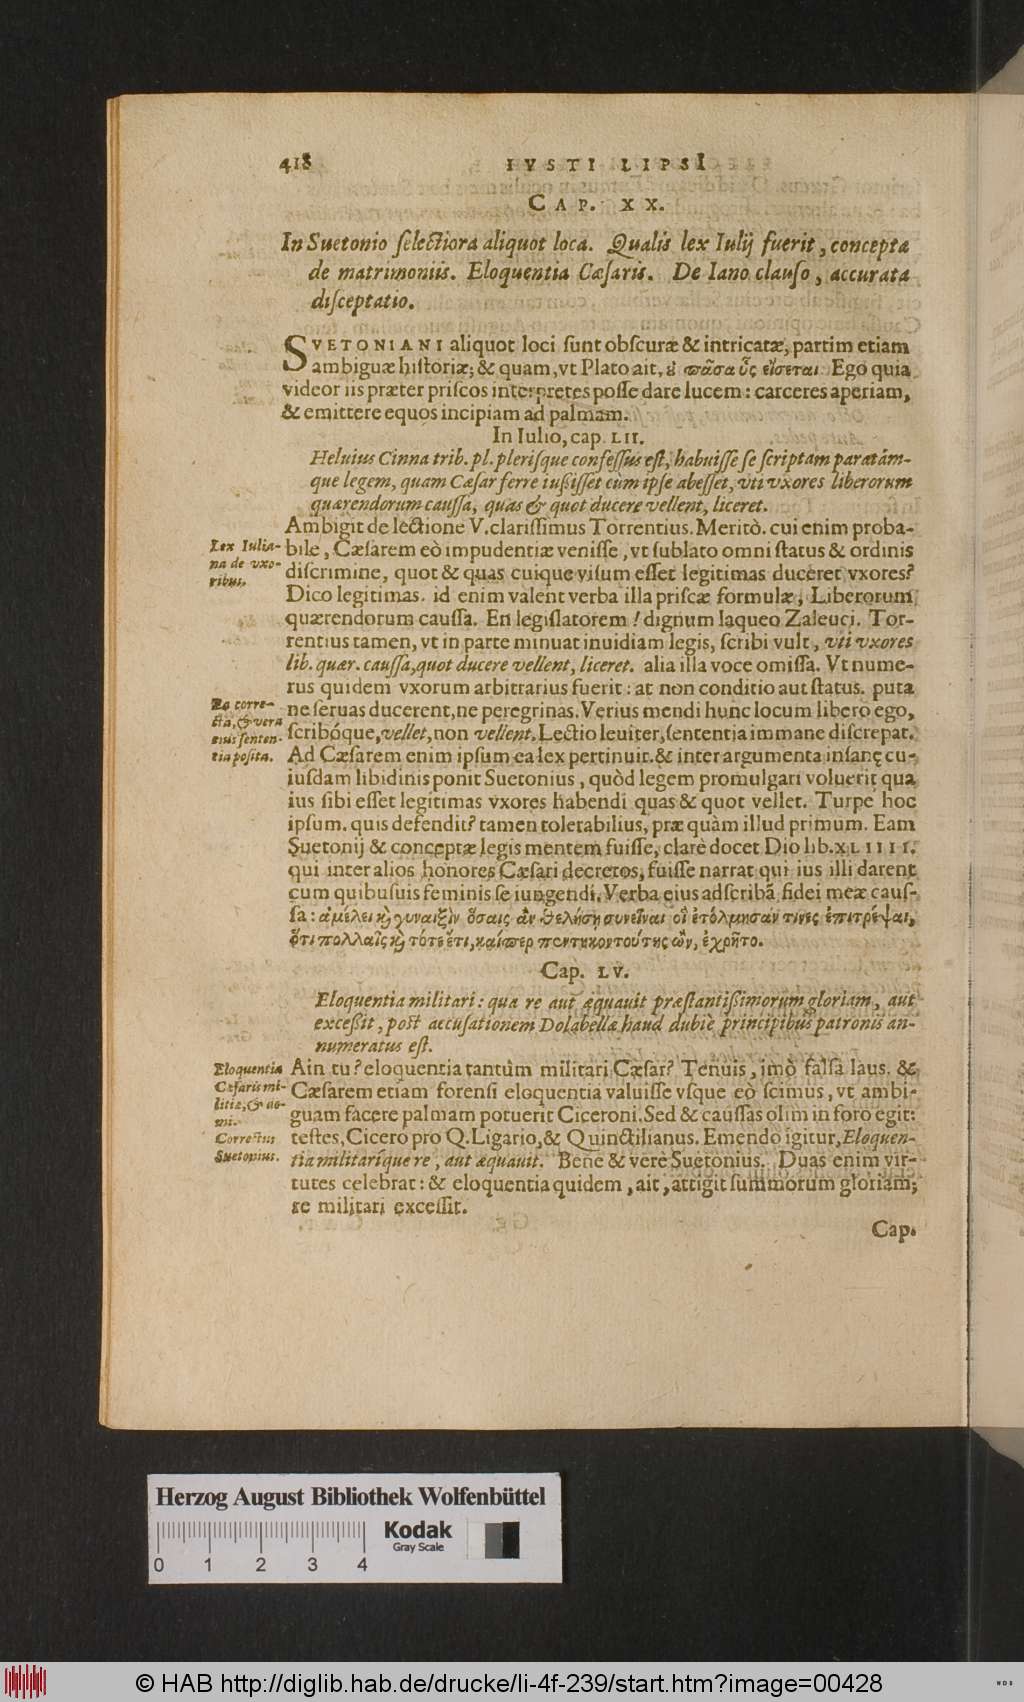 418 IVSTI LIPSI
CAP. XX.
In Suetonio selectiora aliquot loca. Qualis lex Iulij fuerit, concepta
de matrimoniis. Eloquentia Cæsaris. De Iano clauso, accurata
disceptatio.
SVETONIANI aliquot loci sunt obscuræ & intricatæ, partim etiam
ambiguæ historiæ; & quam, vt Plato ait, ȣ πᾶσα ὗς εἴσεται. Ego quia
videor iis præter priscos interpretes posse dare lucem: carceres aperiam,
& emittere equos incipiam ad palmam.
In Iulio, cap. LII.
Heluius Cinna trib. pl. plerisque confessus est, habuisse se scriptam paratám-
que legem, quam Cæsar ferre iußisset cum ipse abesset, vti vxores liberorum
quærendorum caussa, quas & quot ducere vellent, liceret.
Ambigit de lectione V. clarissimus Torrentius. Meritò. cui enim proba-
Lex Iulia-
na de vxo-
ribus.
bile, Cæsarem eò impudentiæ venisse, vt sublato omni status & ordinis
discrimine, quot & quas cuique visum esset legitimas duceret vxores?
Dico legitimas. id enim valent verba illa priscæ formulæ, Liberorum
quærendorum caussa. En legislatorem! dignum laqueo Zaleuci. Tor-
rentius tamen, vt in parte minuat inuidiam legis, scribi vult, vti vxores
lib. quær. caussa, quot ducere vellent, liceret. alia illa voce omissa. Vt nume-
rus quidem vxorum arbitrarius fuerit: at non conditio aut status. puta
Ea corre-
cta, & vera
eius senten-
tia posita.
ne seruas ducerent, ne peregrinas. Verius mendi hunc locum libero ego,
scribóque, vellet, non vellent. Lectio leuiter, sententia immane discrepat.
Ad Cæsarem enim ipsum ea lex pertinuit. & inter argumenta insanę cu-
iusdam libidinis ponit Suetonius, quòd legem promulgari voluerit qua
ius sibi esset legitimas vxores habendi quas & quot vellet. Turpe hoc
ipsum. quis defendit? tamen tolerabilius, præ quàm illud primum. Eam
Suetonij & conceptæ legis mentem fuisse, clarè docet Dio lib. XLIIII.
qui inter alios honores Cæsari decretos, fuisse narrat qui ius illi darent
cum quibusuis feminis se iungendi. Verba eius adscribā fidei meæ caus-
sa: ἀμέλει κ̀ γυναιξὶν ὅσαις ἂν ἐθελήσῃ συνεῖναι οἱ ἐτόλμησάν τινες ἐπιτρέψαι,
ὅτι πολλαῖς κ̀ τότε ἔτι, καίπερ πεντηκοντούτης ὢν, ἐχρῆτο.
Cap. LV.
Eloquentia militari: qua re aut æquauit præstantißimorum gloriam, aut
exceßit, post accusationem Dolabellæ haud dubiè principibus patronis an-
numeratus est.
Eloquentia
Cæsaris mi-
litiæ, & do-
mi.
Correctus
Suetonius.
Ain tu? eloquentia tantùm militari Cæsar? Tenuis, imò falsa laus. &
Cæsarem etiam forensi eloquentia valuisse vsque eò scimus, vt ambi-
guam facere palmam potuerit Ciceroni. Sed & caussas olim in foro egit:
testes, Cicero pro Q. Ligario, & Quinctilianus. Emendo igitur, Eloquen-
tia militaríque re, aut æquauit. Benè & verè Suetonius. Duas enim vir-
tutes celebrat: & eloquentia quidem, ait, attigit summorum gloriam;
re militari excessit.
Cap.
Herzog August Bibliothek Wolfenbüttel
Kodak
Gray Scale
0 1 2 3 4
© HAB http://diglib.hab.de/drucke/li-4f-239/start.htm?image=00428